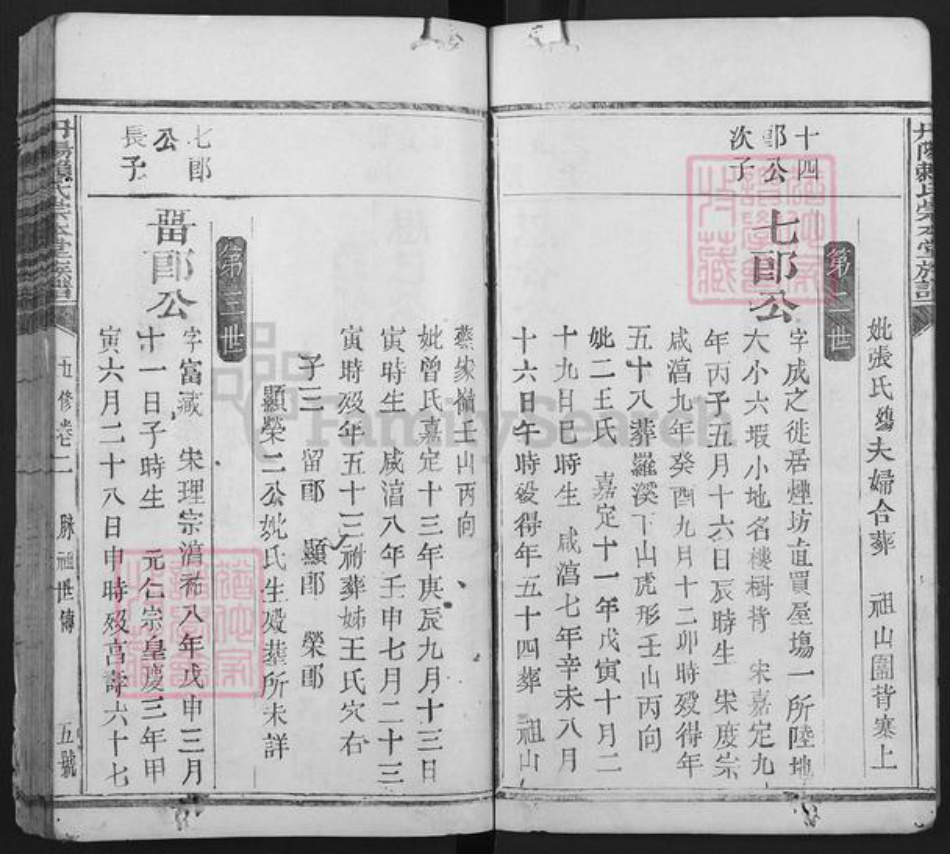 妣張氏鄔夫婦合葬　祖山圍背寨上
第二世
十四
郎公
次子
七郎公
字成之徙居煙坊直買屋塲一所陸地
大小六瑕小地名樓樹背　宋嘉定九
年丙子五月十六日辰時生　宋度宗
咸淳九年癸酉九月十二卯時殁得年
五十八葬羅溪下山虎形壬山丙向
妣二王氏　嘉定十一年戊寅十月二
十九日巳時生　咸淳七年辛未八月
十六日午時殁得年五十四葬　祖山
蔡家嶺壬山丙向
妣曾氏嘉定十三年庚辰九月十三日
寅時生　咸淳八年壬申七月二十三
寅時殁年五十三祔葬姊王氏穴右
子三　留郎　顯郎　榮郎
顯榮二公妣氏生殁塟所未詳
第三世
七郎
公
長子
畱郎公
字富藏　宋理宗淳祐八年戊申三月
十一日子時生　元仁宗皇慶三年甲
寅六月二十八日申時殁享壽六十七
丹陽賴氏崇本堂族譜
五修卷二
脉祖世傳
五號
丹陽賴氏崇本堂族譜
FamilySearch